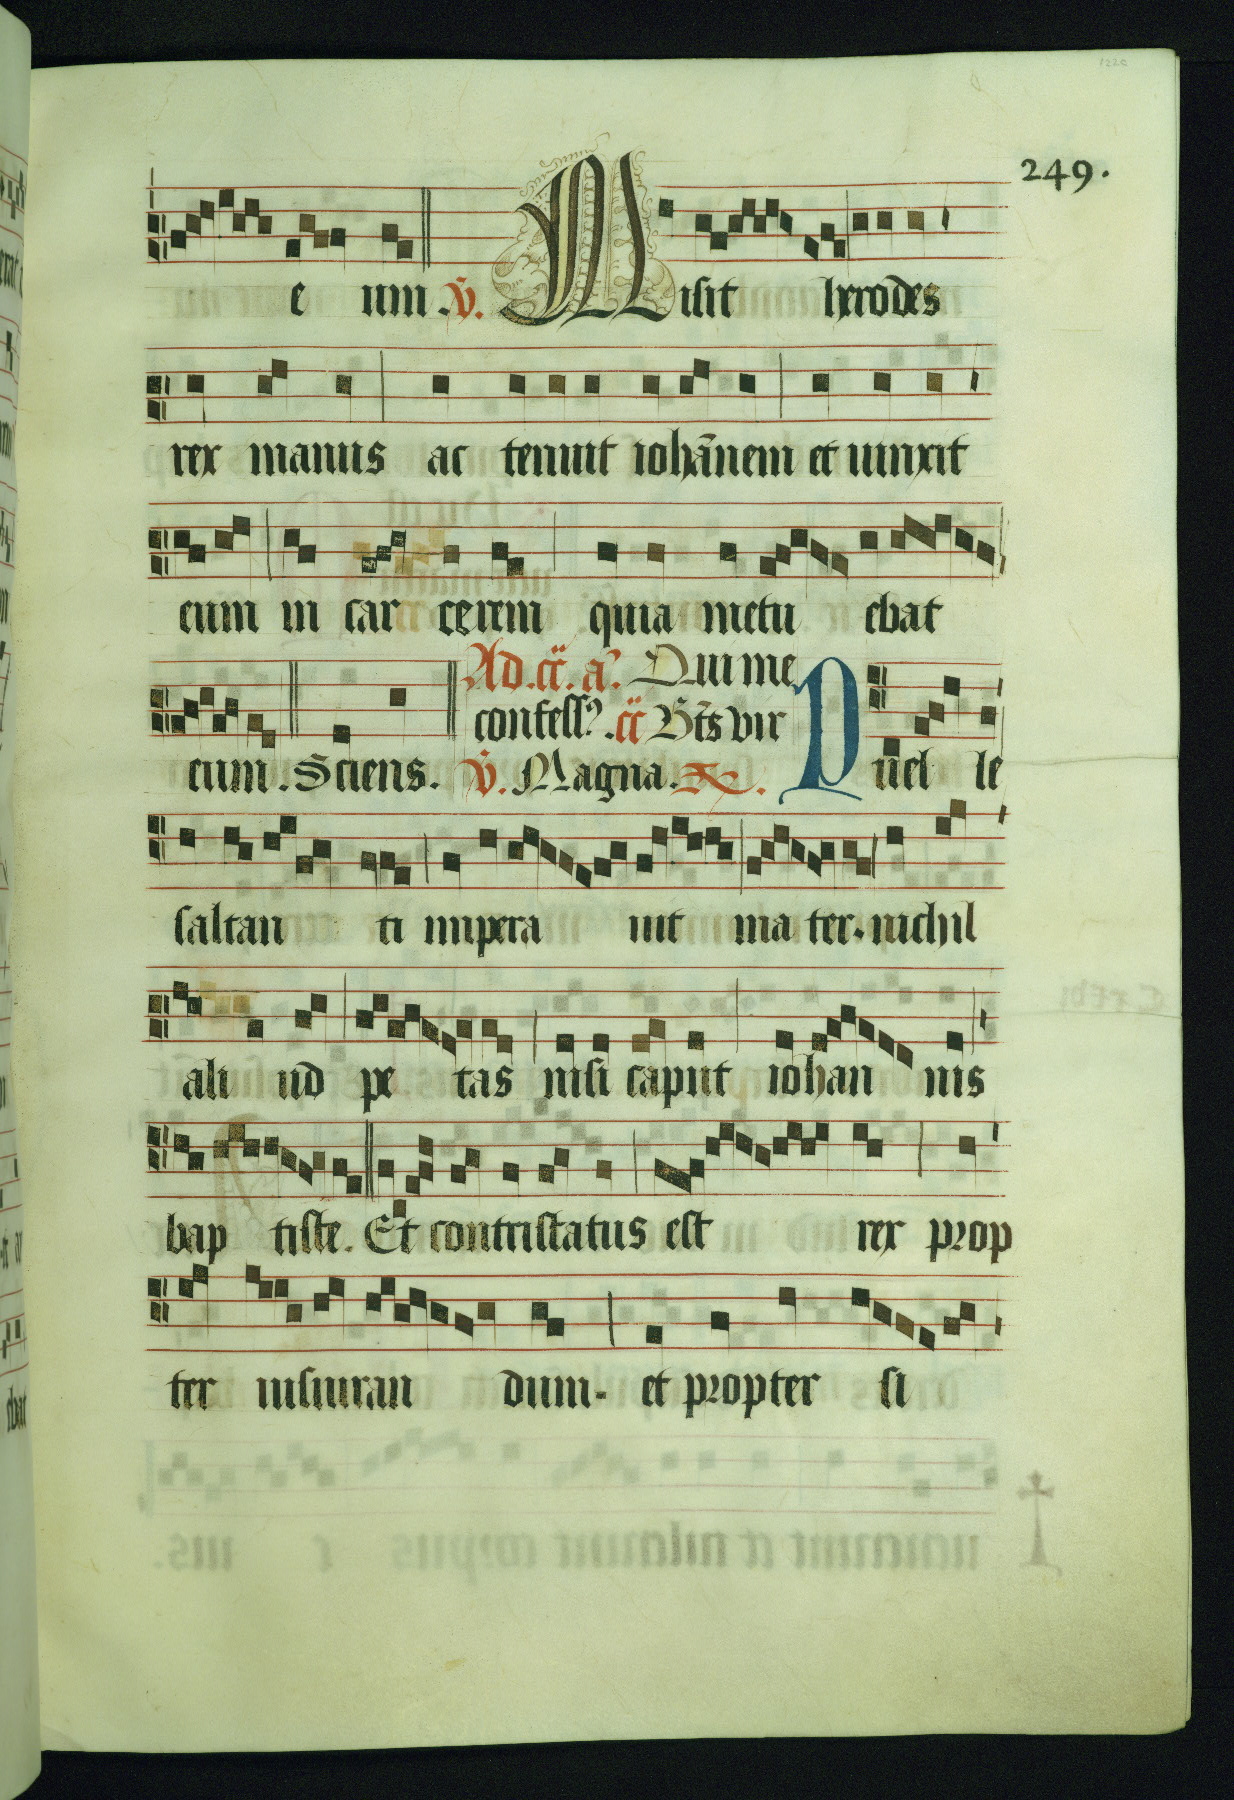 249.
e um .v̄. Misit herodes
rex manus ac tenuit iohānem et uinxit
eum in car cerem quia metu ebat
Ad .cc̄. a᷒. Qui me
confess᷒ .cc̄ Bt̄s vir
eum . Sciens. v̄. Magna. Puel le
saltan ti impera uit ma ter. nichil
ali ud pe tas nisi caput iohan nis
bap tiste. Et contristatus est rex prop
ter iusiuran dum. et propter si